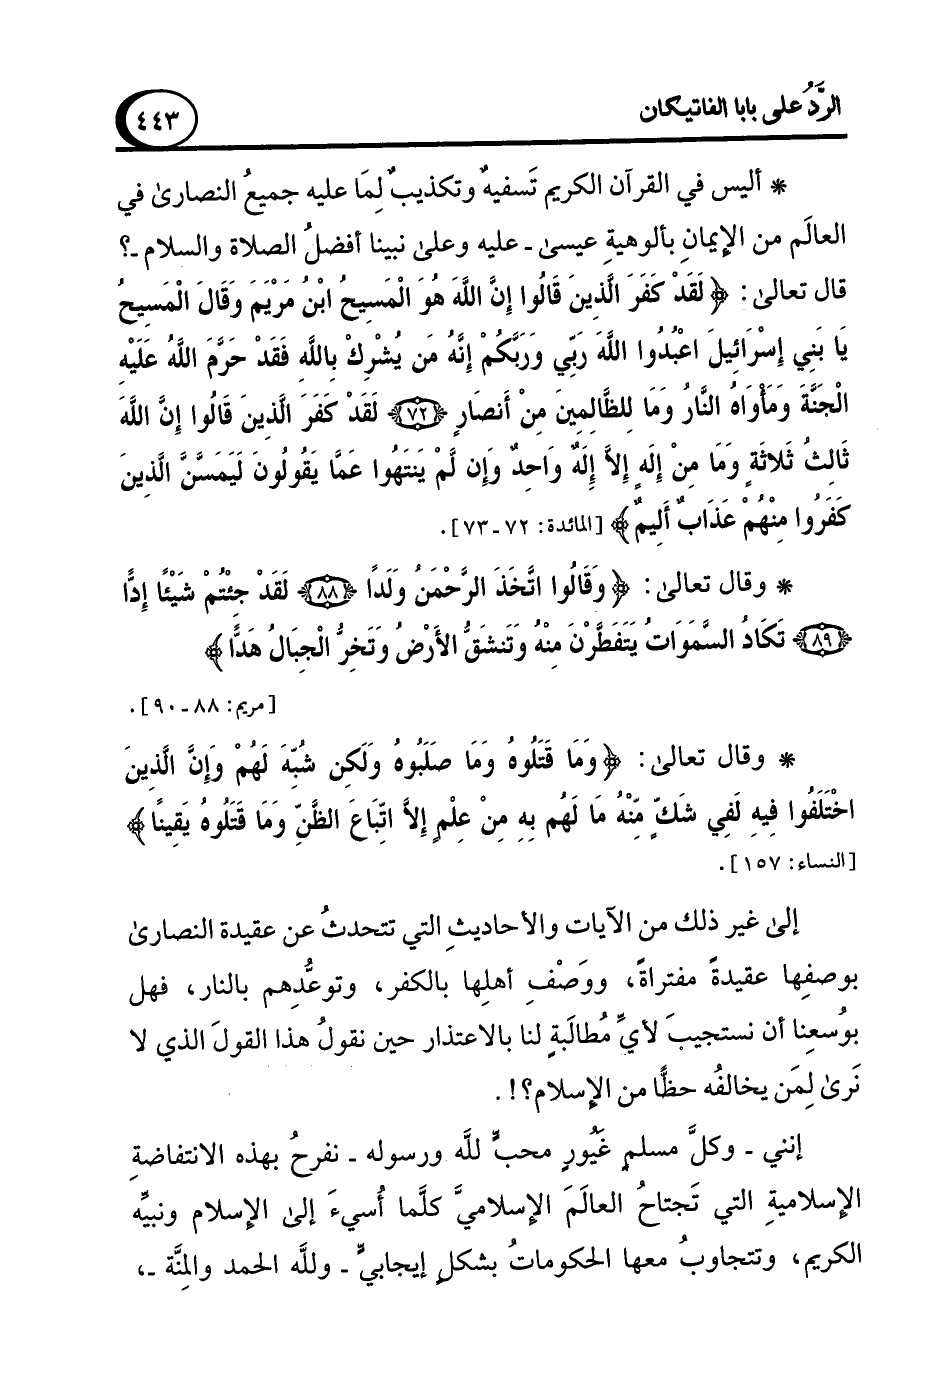 الرَّدُّ على بابا الفاتيكان
٤٤٣
* أليس في القرآن الكريم تَسفيهٌ وتكذيبٌ لِمَا عليه جميعُ النصارىٰ في
العالَم من الإيمانِ بألوهيةِ عيسىٰ ـ عليه وعلىٰ نبينا أفضلُ الصلاة والسلام ـ؟
قال تعالىٰ: ﴿ لَقَدْ كَفَرَ الَّذِينَ قَالُوا إِنَّ اللَّهَ هُوَ الْمَسِيحُ ابْنُ مَرْيَمَ وَقَالَ الْمَسِيحُ
يَا بَنِي إِسْرَائِيلَ اعْبُدُوا اللَّهَ رَبِّي وَرَبَّكُمْ إِنَّهُ مَن يُشْرِكْ بِاللَّهِ فَقَدْ حَرَّمَ اللَّهُ عَلَيْهِ
الْجَنَّةَ وَمَأْوَاهُ النَّارُ وَمَا لِلظَّالِمِينَ مِنْ أَنصَارٍ ﴿٧٢﴾ لَقَدْ كَفَرَ الَّذِينَ قَالُوا إِنَّ اللَّهَ
ثَالِثُ ثَلاثَةٍ وَمَا مِنْ إِلَهٍ إِلاَّ إِلَهٌ وَاحِدٌ وَإِن لَّمْ يَنتَهُوا عَمَّا يَقُولُونَ لَيَمَسَّنَّ الَّذِينَ
كَفَرُوا مِنْهُمْ عَذَابٌ أَلِيمٌ ﴾ [المائدة: ٧٢ ـ ٧٣].
* وقال تعالىٰ: ﴿ وَقَالُوا اتَّخَذَ الرَّحْمَنُ وَلَدًا ﴿٨٨﴾ لَقَدْ جِئْتُمْ شَيْئًا إِدًّا
﴿٨٩﴾ تَكَادُ السَّمَوَاتُ يَتَفَطَّرْنَ مِنْهُ وَتَنشَقُّ الأَرْضُ وَتَخِرُّ الْجِبَالُ هَدًّا ﴾
[مريم: ٨٨ ـ ٩٠].
* وقال تعالىٰ: ﴿ وَمَا قَتَلُوهُ وَمَا صَلَبُوهُ وَلَكِن شُبِّهَ لَهُمْ وَإِنَّ الَّذِينَ
اخْتَلَفُوا فِيهِ لَفِي شَكٍّ مِّنْهُ مَا لَهُم بِهِ مِنْ عِلْمٍ إِلاَّ اتِّبَاعَ الظَّنِّ وَمَا قَتَلُوهُ يَقِينًا ﴾
[النساء: ١٥٧].
إلىٰ غير ذلك من الآيات والأحاديثِ التي تتحدثُ عن عقيدة النصارىٰ
بوصفِها عقيدةً مفتراةً، ووَصْفِ أهلِها بالكفر، وتوعُّدِهم بالنار، فهل
بوُسعِنا أن نستجيبَ لأيِّ مُطالَبةٍ لنا بالاعتذار حين نقولُ هذا القولَ الذي لا
نَرىٰ لِمَن يخالفُه حظًّا من الإسلام؟!.
إنني ـ وكلَّ مسلمٍ غَيُورٍ محبٍّ للَّه ورسوله ـ نفرحُ بهذه الانتفاضةِ
الإسلاميةِ التي تَجتاحُ العالَمَ الإسلاميَّ كلَّما أُسيءَ إلىٰ الإسلام ونبيِّه
الكريم، وتتجاوبُ معها الحكوماتُ بشكلٍ إيجابيٍّ ـ وللَّه الحمد والمِنَّة ـ،